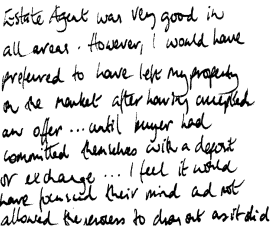 Estate Agent was very good in
all areas. However, I would have
preferred to have left my property
on the market after having accepted
an offer ... until buyer had
committed themselves with a deposit
or exchange ... I feel it would
have focused their mind and not
allowed the process to drag out as it did